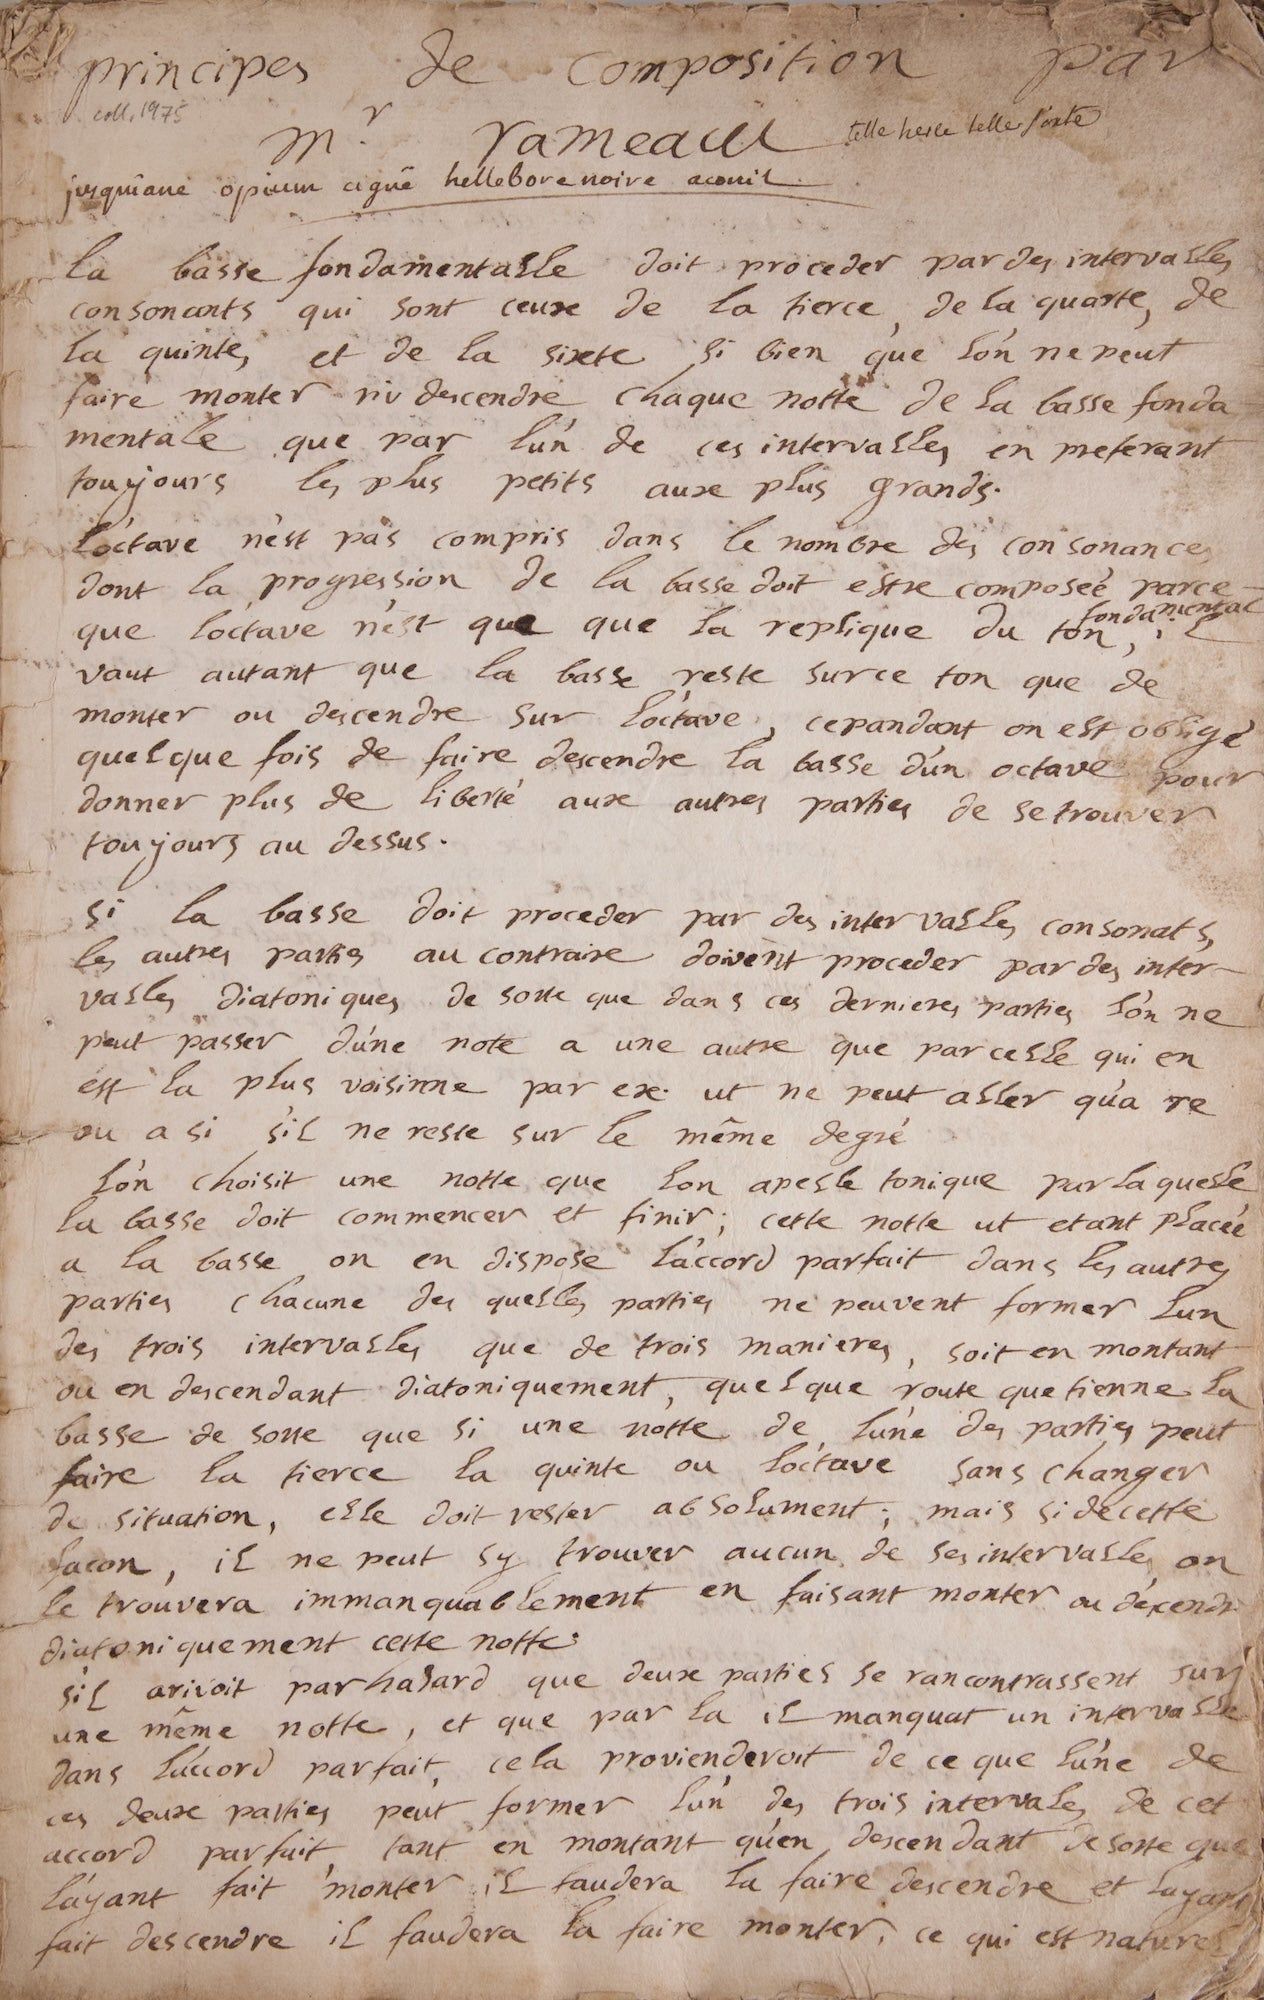 principes de composition par
coll. 1975
Mr. rameau
telle herbe telle
jusquiane opium ciguë hellebore noire aconit
la basse fondamentalle doit proceder par des intervalles
consonants qui sont ceux de la tierce, de la quarte, de
la quinte, et de la sixte si bien que l'on ne peut
faire monter niv descendre chaque notte de la basse fonda
mentale que par l'un de ces intervalles en preferant
toujours les plus petits aux plus grands.
l'octave n'est pas compris dans le nombre des consonances
dont la progression de la basse doit estre composée parce-
que l'octave n'est que que la replique du ton, fondamental il
vaut autant que la basse reste sur ce ton que de
monter ou descendre sur l'octave, cepandant on est obligé
quelque fois de faire descendre la basse d'un octave pour
donner plus de liberté aux autres parties de se trouver
toujours au dessus.
si la basse doit proceder par des intervalles consonats,
les autres parties au contraire doivent proceder par des inter-
valles diatoniques de sorte que dans ces dernieres parties l'on ne
peut passer d'une note a une autre que par celle qui en
est la plus voisinne par ex. ut ne peut aller qu'a re
ou a si s'il ne reste sur le même degré
l'on choisit une notte que l'on apelle tonique par laquelle
la basse doit commencer et finir; cette notte ut etant placée
a la basse on en dispose l'accord parfait dans les autres
parties chacune des quelles parties ne peuvent former l'un
des trois intervalles que de trois manieres, soit en montant
ou en descendant diatoniquement, quelque route que tienne la
basse de sorte que si une notte de l'une des parties peut
faire la tierce la quinte ou l'octave sans changer
de situation, elle doit rester absolument; mais si de cette
facon, il ne peut sy trouver aucun de ses intervalles on
le trouvera immanquablement en faisant monter ou décendre
diatoniquement cette notte.
s'il arivoit par hasard que deux parties se rancontrassent sur
une même notte, et que par la il manquat un intervalle
dans l'accord parfait, cela proviendervit de ce que l'une de
ces deux parties peut former l'un des trois intervales de cet
accord parfait, tant en montant qu'en descendant de sorte que
l'ayant fait monter il faudera la faire descendre et layant
fait descendre il faudera la faire monter, ce qui est naturel